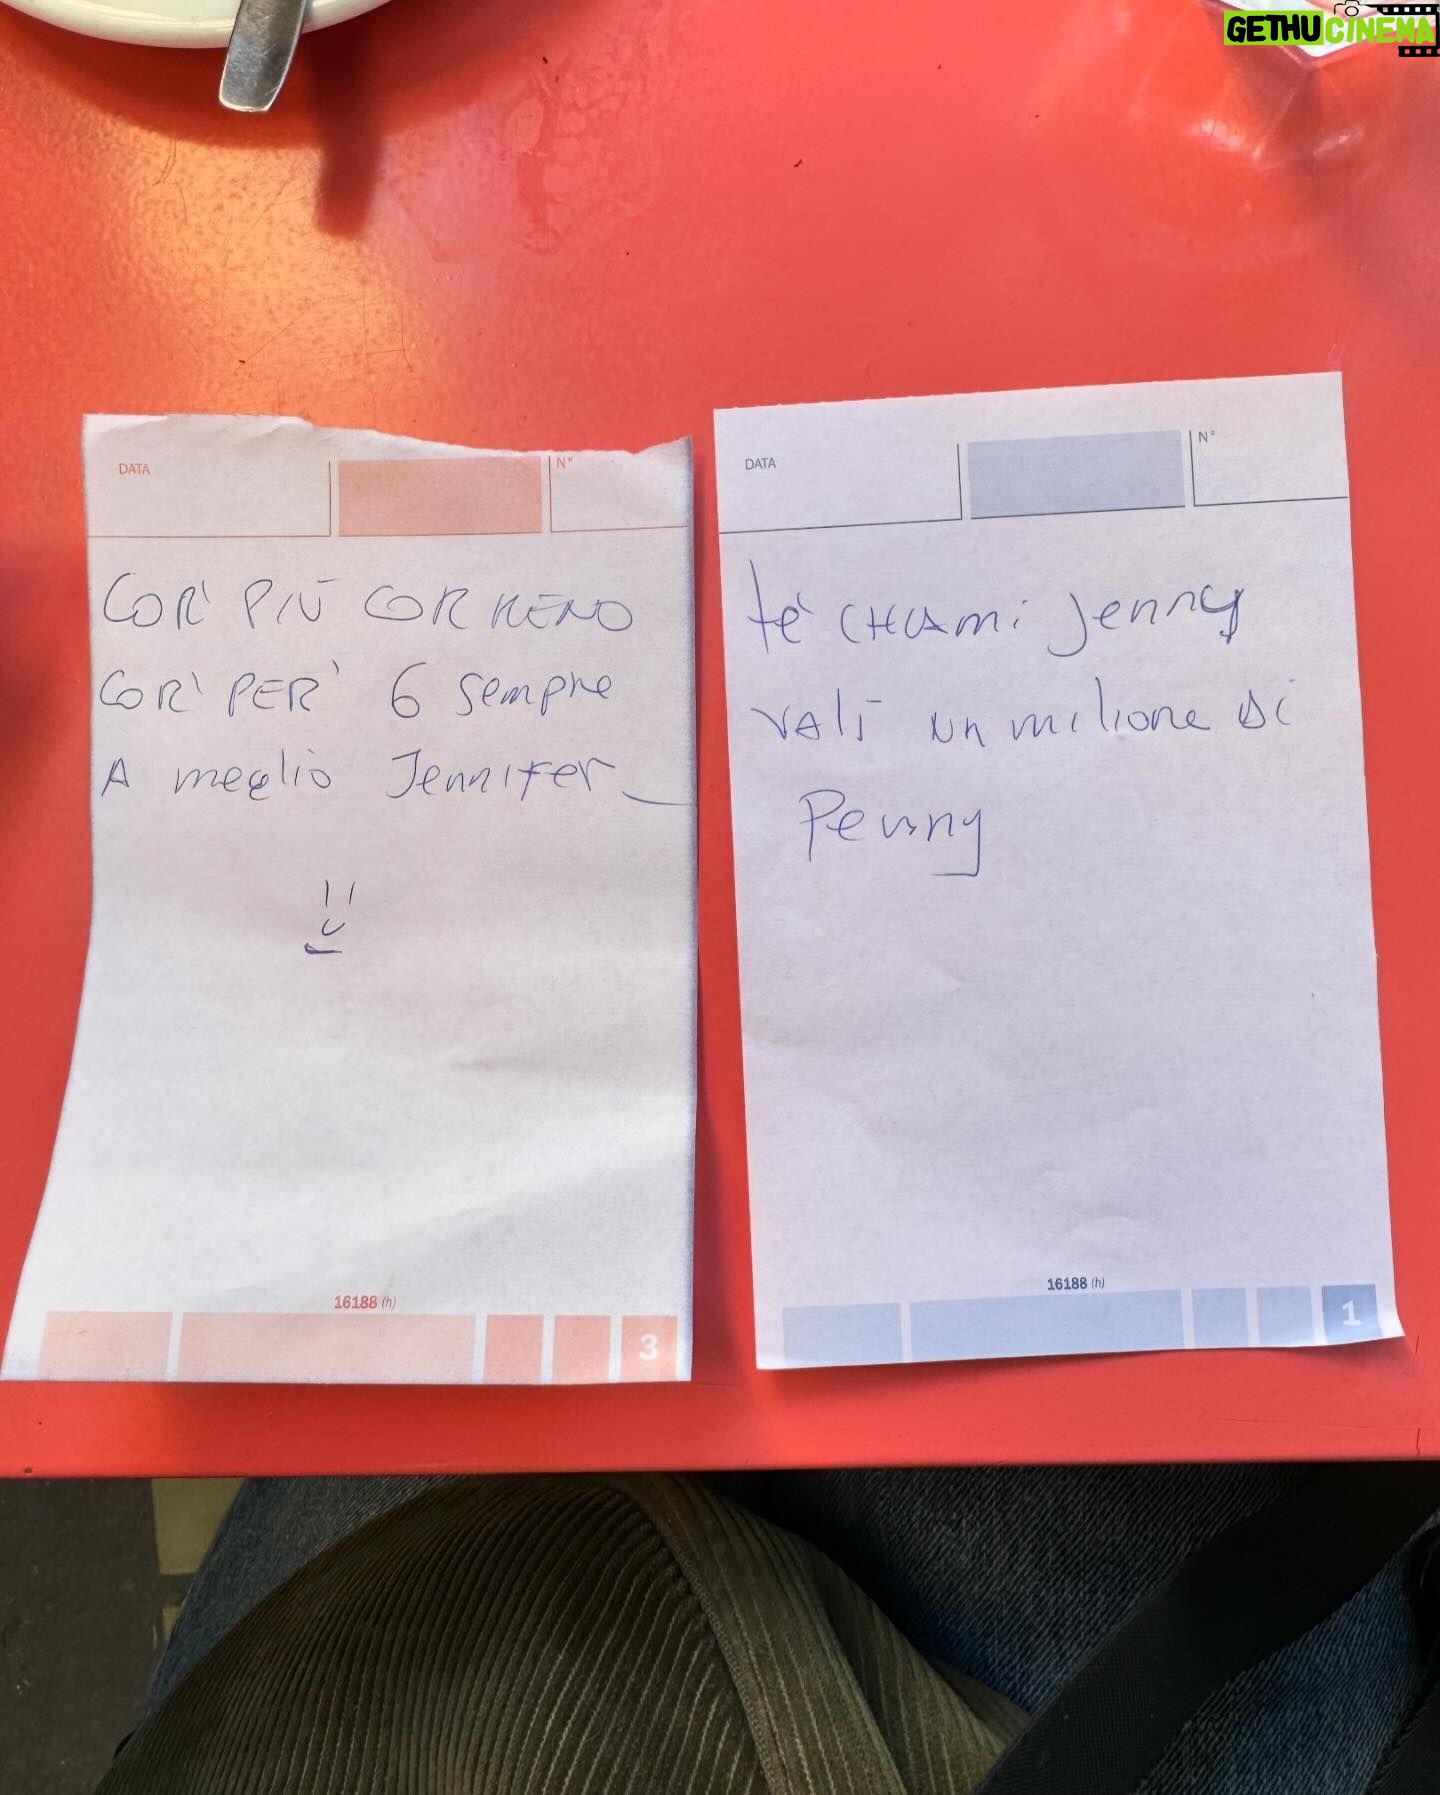 GETHUCINEMA
DATA
N°
COR' PIÙ COR MENO
COR' PER' 6 sempre
A meglio Jennifer_
16188 (h)
3
DATA
N°
te' CHIAMi Jenny
VALi un milione Di
Penny
16188 (h)
1